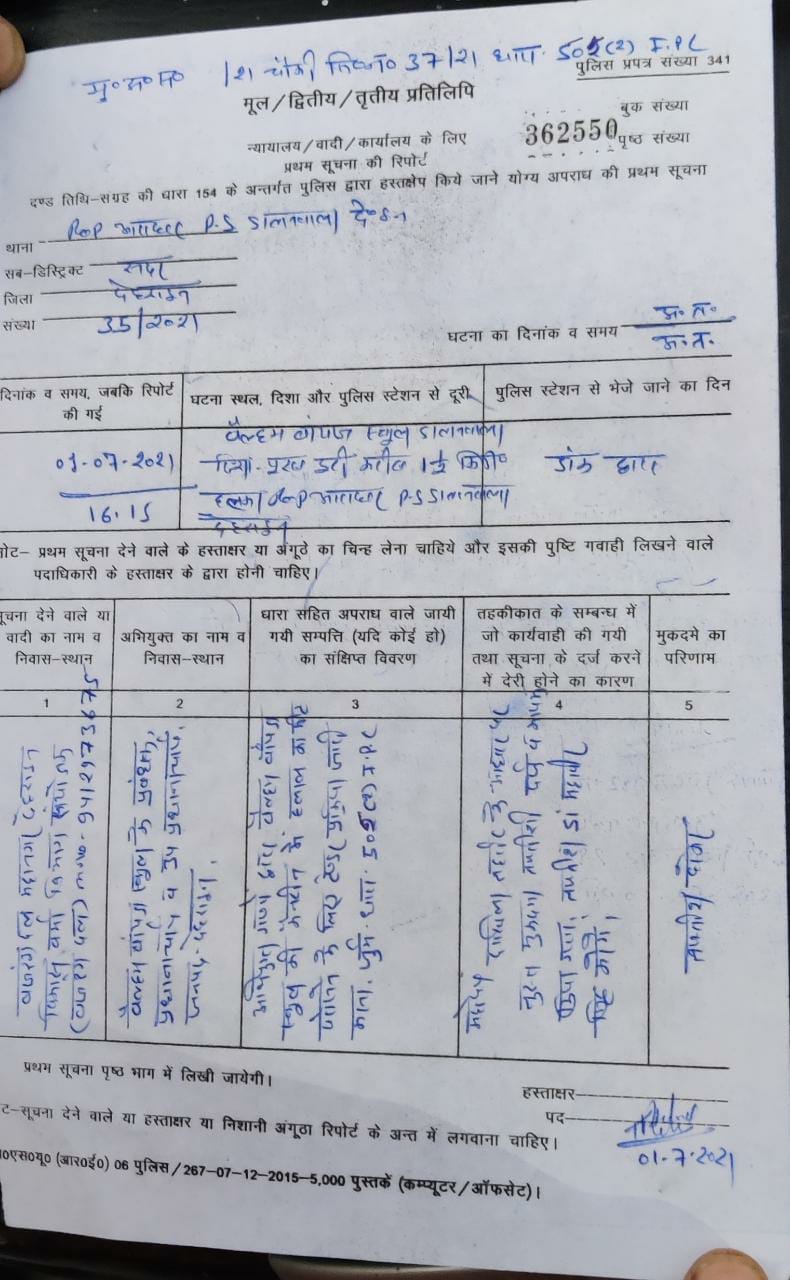 मु०अ०स० /21 चौकी नि०क्र० 37/21 धारा 505(2) I.P.C
पुलिस प्रपत्र संख्या 341
मूल/द्वितीय/तृतीय प्रतिलिपि
बुक संख्या
न्यायालय/वादी/कार्यालय के लिए
362550
पृष्ठ संख्या
प्रथम सूचना की रिपोर्ट
दण्ड तिथि-संग्रह की धारा 154 के अन्तर्गत पुलिस द्वारा हस्तक्षेप किये जाने योग्य अपराध की प्रथम सूचना
थाना P.S डालनवाला दे०दून
सब-डिस्ट्रिक्ट सदर
जिला देहरादून
संख्या 35/2021
घटना का दिनांक व समय अ० त०
अ० त०
दिनांक व समय, जबकि रिपोर्ट
की गई
घटना स्थल, दिशा और पुलिस स्टेशन से दूरी
पुलिस स्टेशन से भेजे जाने का दिन
01-07-2021
16.15
वैल्हम बॉयज स्कूल डालनवाला
दिशा-पूरब दूरी करीब 1½ किमी०
हल्का P.S डालनवाला
देहरादून
डाक द्वारा
नोट- प्रथम सूचना देने वाले के हस्ताक्षर या अंगूठे का चिन्ह लेना चाहिये और इसकी पुष्टि गवाही लिखने वाले
पदाधिकारी के हस्ताक्षर के द्वारा होनी चाहिए।
सूचना देने वाले या
वादी का नाम व
निवास-स्थान
अभियुक्त का नाम व
निवास-स्थान
धारा सहित अपराध वाले जायी
गयी सम्पत्ति (यदि कोई हो)
का संक्षिप्त विवरण
तहकीकात के सम्बन्ध में
जो कार्यवाही की गयी
तथा सूचना के दर्ज करने
में देरी होने का कारण
मुकदमे का
परिणाम
1
2
3
4
5
बजरंग दल महानगर देहरादून
विकास वर्मा विभाग संयोजक
(बजरंग दल) mno-9412973675
वैल्हम बॉयज स्कूल के प्रबंधक,
प्रधानाचार्य व उप प्रधानाचार्य,
जनपद-देहरादून.
अभियुक्त गणों द्वारा वैल्हम बॉयज
स्कूल की कैन्टीन में हलाल का मीट
परोसने के लिए टेण्डर प्रक्रिया जारी
करना. जुर्म धारा. 505(2) I.P.C
महोदय दाखिला तहरीर के आधार पर
तुरन्त मुकदमा तफ्तीशी दर्ज व कायम
किया गया. तफ्तीश
तफ्तीश होकर
प्रथम सूचना पृष्ठ भाग में लिखी जायेगी।
हस्ताक्षर
पद
01-7-2021
नोट-सूचना देने वाले या हस्ताक्षर या निशानी अंगूठा रिपोर्ट के अन्त में लगवाना चाहिए।
०एस०यू० (आर०ई०) 06 पुलिस/267-07-12-2015-5,000 पुस्तकें (कम्प्यूटर/ऑफसेट)।